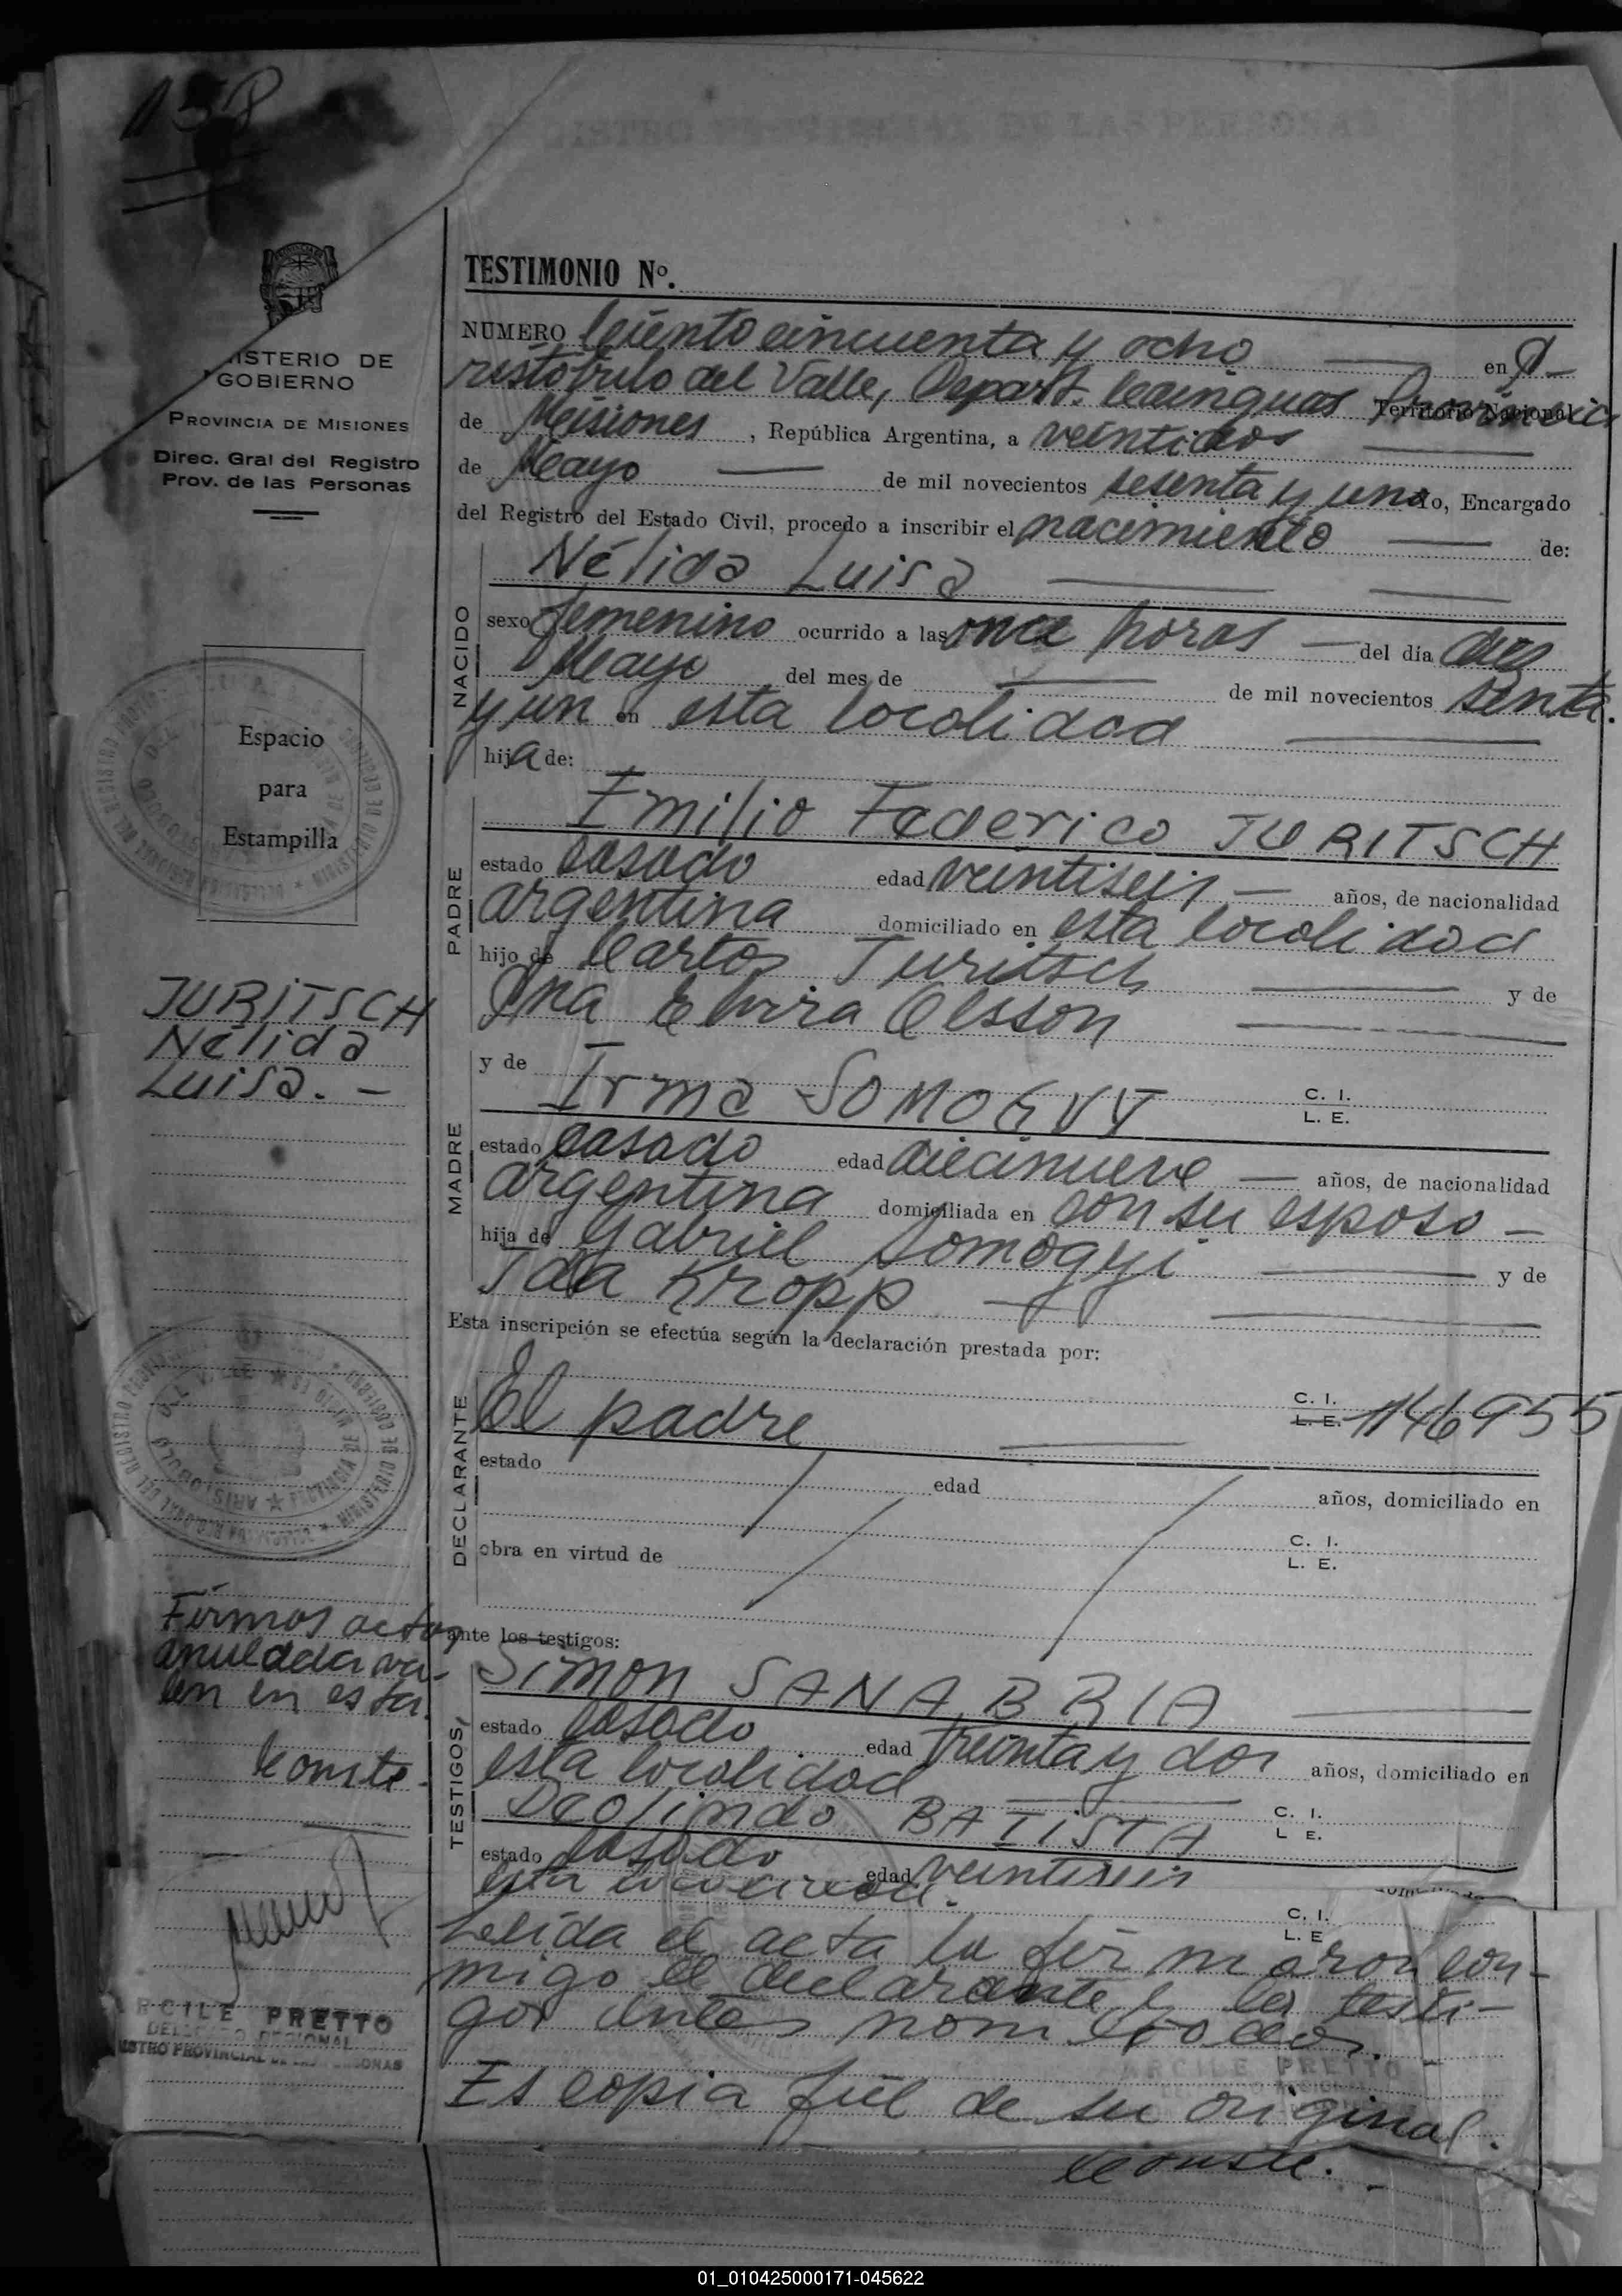 158
MINISTERIO DE
GOBIERNO
PROVINCIA DE MISIONES
Direc. Gral del Registro
Prov. de las Personas
Espacio
para
Estampilla
JURITSCH
Nélida
Luisa. —
Firmas acta
anulada va-
len en esta.
Conste.
ARCILE PRETTO
DELEGADO REGIONAL
REGISTRO PROVINCIAL DE LAS PERSONAS
TESTIMONIO Nº.
NUMERO Ciento cincuenta y ocho — en A-
ristóbulo del Valle, Depart. Cainguas Provincia Territorio Nacional
de Misiones, República Argentina, a veintidos —
de Mayo — de mil novecientos sesenta y uno yo, Encargado
del Registro del Estado Civil, procedo a inscribir el nacimiento — de:
NACIDO
Nélida Luisa —
sexo femenino ocurrido a las once horas — del día diez
Mayo del mes de — de mil novecientos senta.
y un en esta localidad —
hija de:
PADRE
Emilio Federico JURITSCH
estado casado edad veintiseis — años, de nacionalidad
argentina domiciliado en esta localidad
hijo de Carlos Juritsch — y de
Ana Elvira Olsson —
y de Irma SOMOGYI C. I.
L. E.
MADRE
estado casado edad diecinueve — años, de nacionalidad
argentina domiciliada en con su esposo —
hija de Gabriel Somogyi — y de
Ida Kropp —
Esta inscripción se efectúa según la declaración prestada por:
DECLARANTE
El padre — C. I.
L. E. 1146955
estado edad años, domiciliado en
C. I.
obra en virtud de L. E.
ante los testigos:
TESTIGOS
Simon SANABRIA —
estado casado edad treinta y dos años, domiciliado en
esta localidad —
Deolindo BATISTA C. I.
L E.
estado casado edad veintiseis
esta
C. I.
L. E
Leída el acta la firmaron con-
migo el declarante y los testi-
gos antes nombrados. —
ARCILE PRETTO
Es copia fiel de su original.
Conste. -
01_010425000171-045622